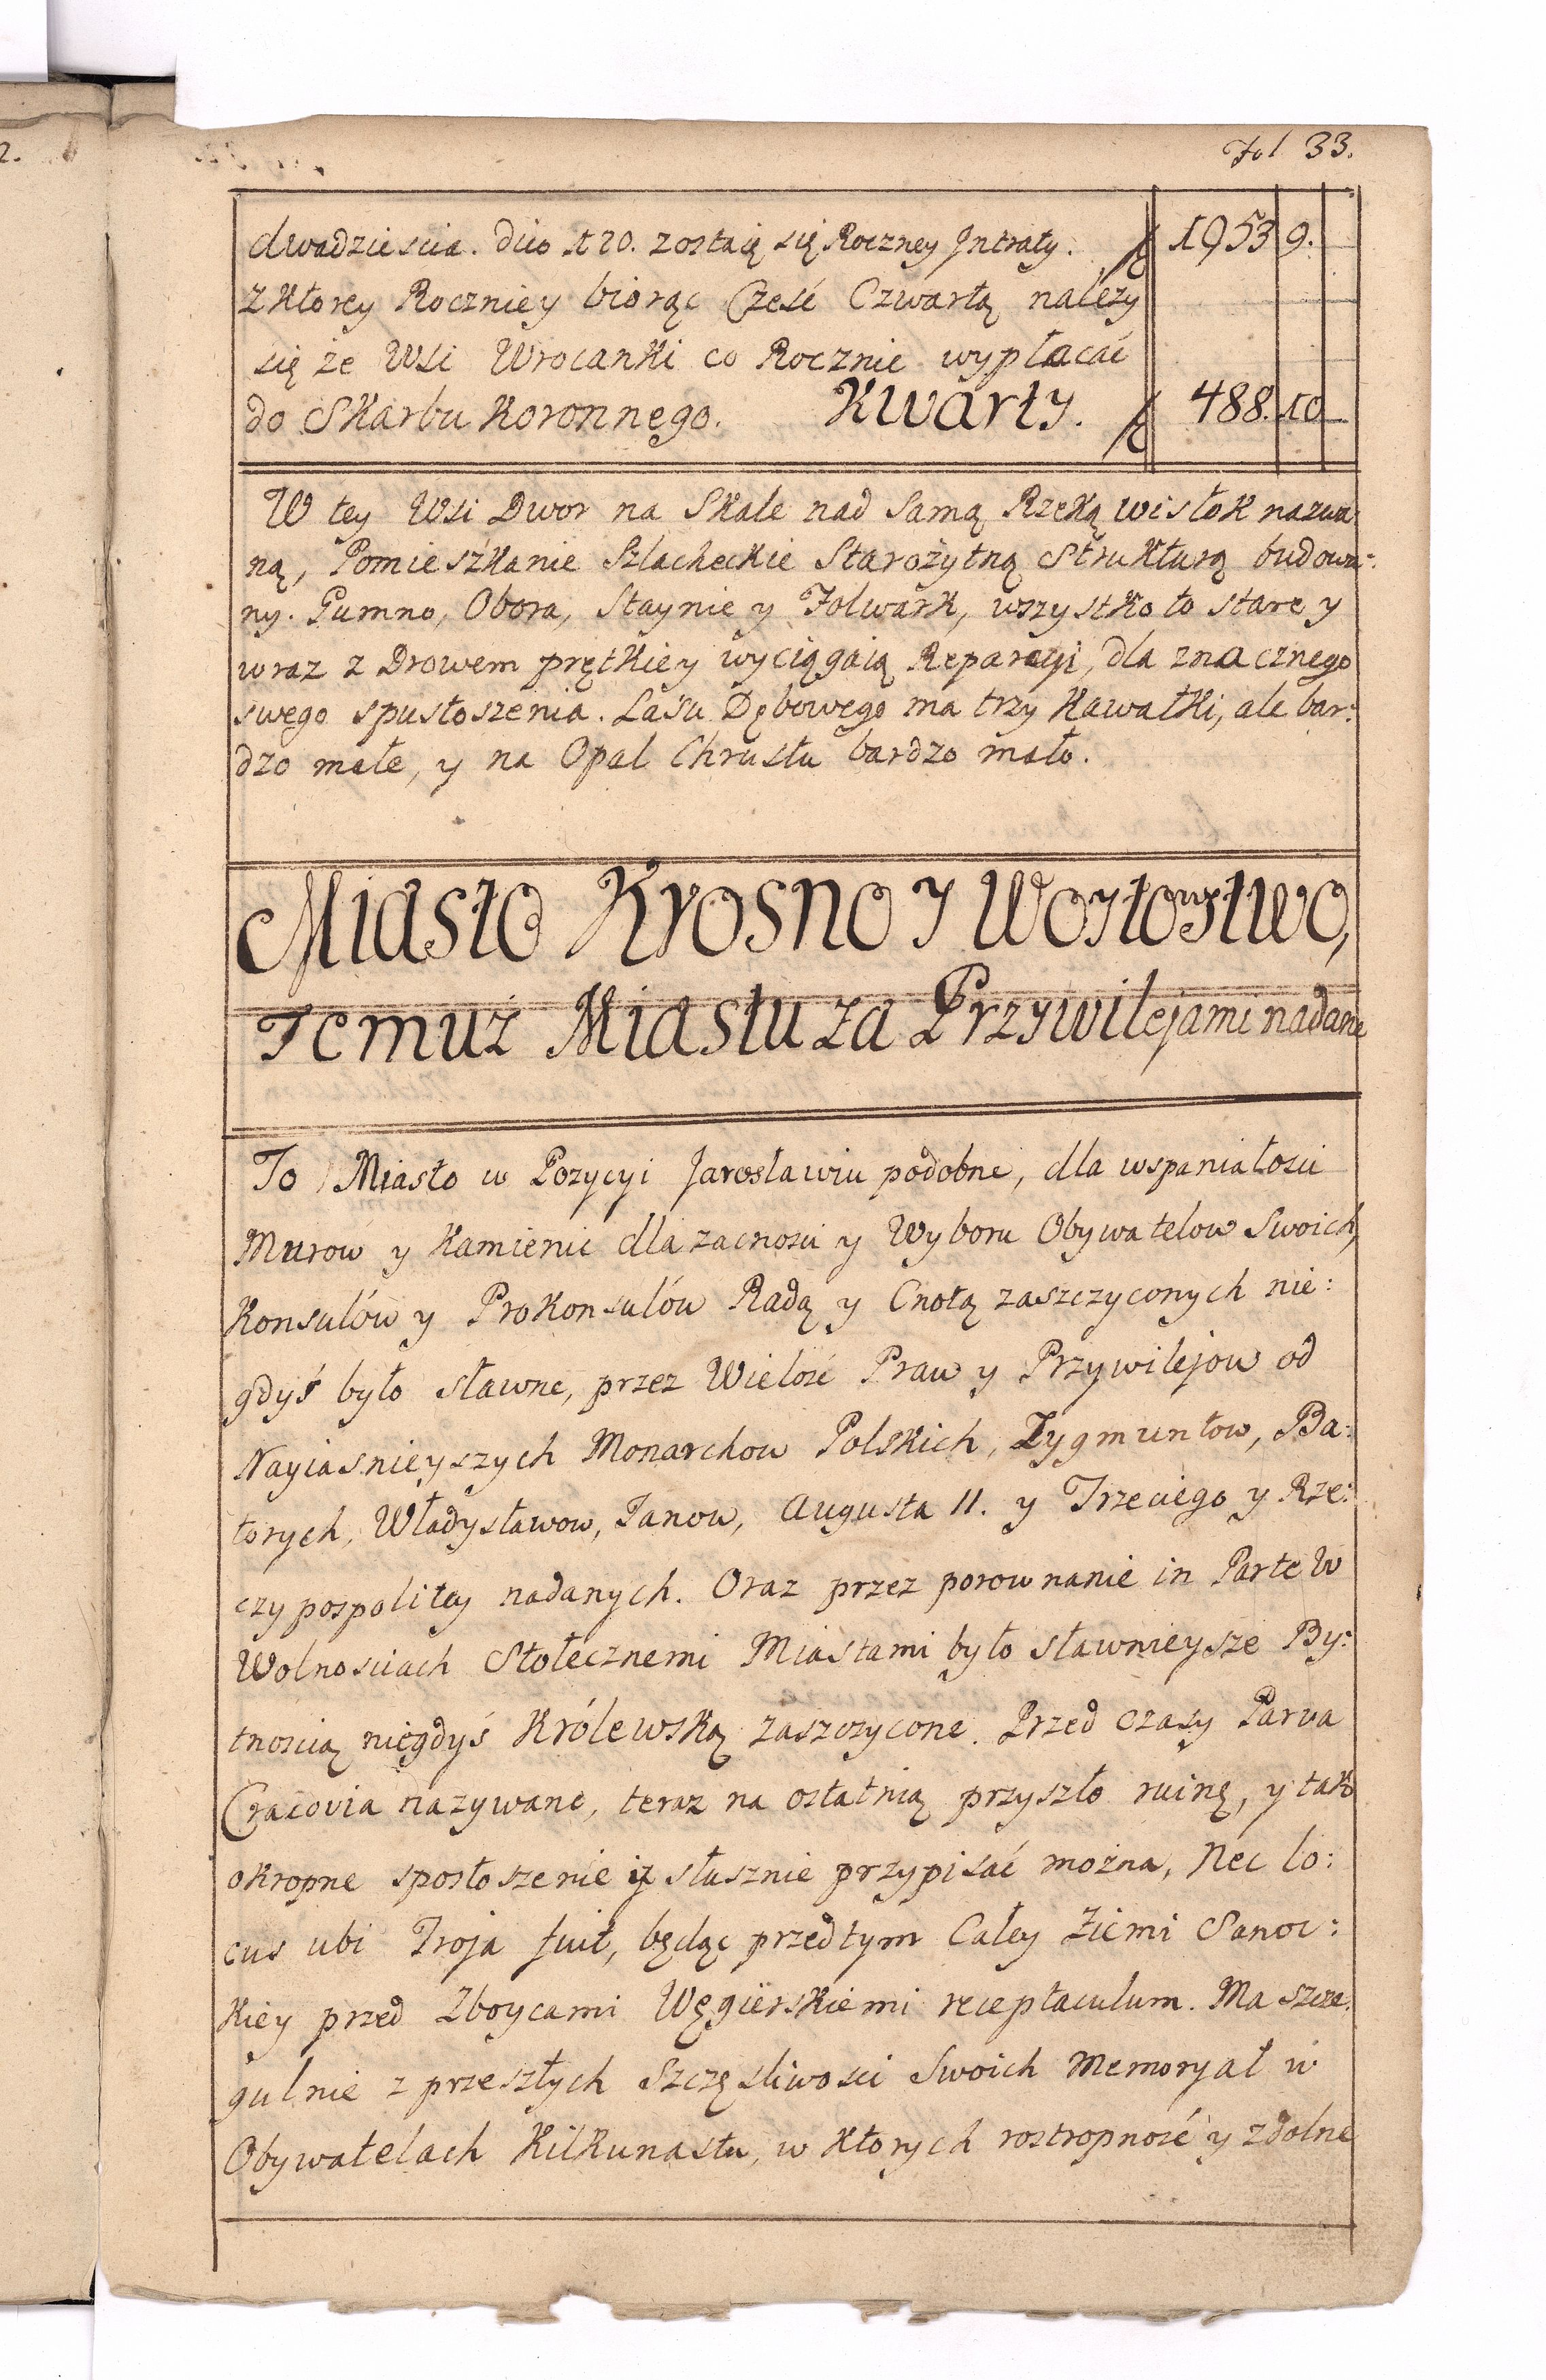 Fol 33.
dwadziescia. dico 120. zostaię się Roczney Jntraty. 1953 9.
z Ktorey Roczniey biorąc Częsć Czwartą należy
się że Wsi Wrocanki co Rocznie wypłacać
do Skarbu Koronnego. Kwarty. 488. 10
W tey Wsi Dwor na Skale nad Samą Rzeką wisłok nazwa:
ną, Pomieszkanie Szlacheckie Starożytną Strukturą budowa:
ny. Gumno, Obora, Staynie y Folwark, wszystko to stare y
wraz z Drowem prętkiey wyciągaią Reparacyi, dla znacznego
swego spustoszenia. Lasu Dębowego ma trzy Kawałki, ale bar:
dzo małe, y na Opal Chrustu bardzo mało.
Miasto Krosno y Woytowstwo,
Temuż Miastu za Przywilejami nadane
To Miasto w Pozycyi Jarosławiu podobne, dla wspaniałosci
Murow y Kamienic dla zacnosci y Wyboru Obywatelow Swoich,
Konsulów y Prokonsulów Radą y Cnotą zaszczyconych nie:
gdyś było sławne, przez Wielość Praw y Przywilejow od
Nayiasnieyszych Monarchow Polskich, Zygmuntow, Ba:
torych, Władysławow, Janow, Augusta II. y Trzeciego y Rze:
czypospolitey nadanych. Oraz przez porownanie in Parte w
Wolnosciach Stołecznemi Miastami było sławnieysze By:
tnoscią niegdyś Królewską zaszczycone. Przed czasy Parva
Cracovia nazywane, teraz na ostatnią przyszło ruinę, y tak
okropne spostoszenie iż słusznie przypisać można, Nec lo:
cus ubi Troja fuit, będąc przedtym Całey Ziemi Sanoc:
Kiey przed Zboycami Węgierskiemi receptaculum. Ma szcze:
gulnie z przeszłych Szczęsliwosci Swoich Memoryał w
Obywatelach Kilkunastu, w Ktorych rostropność y zdolne